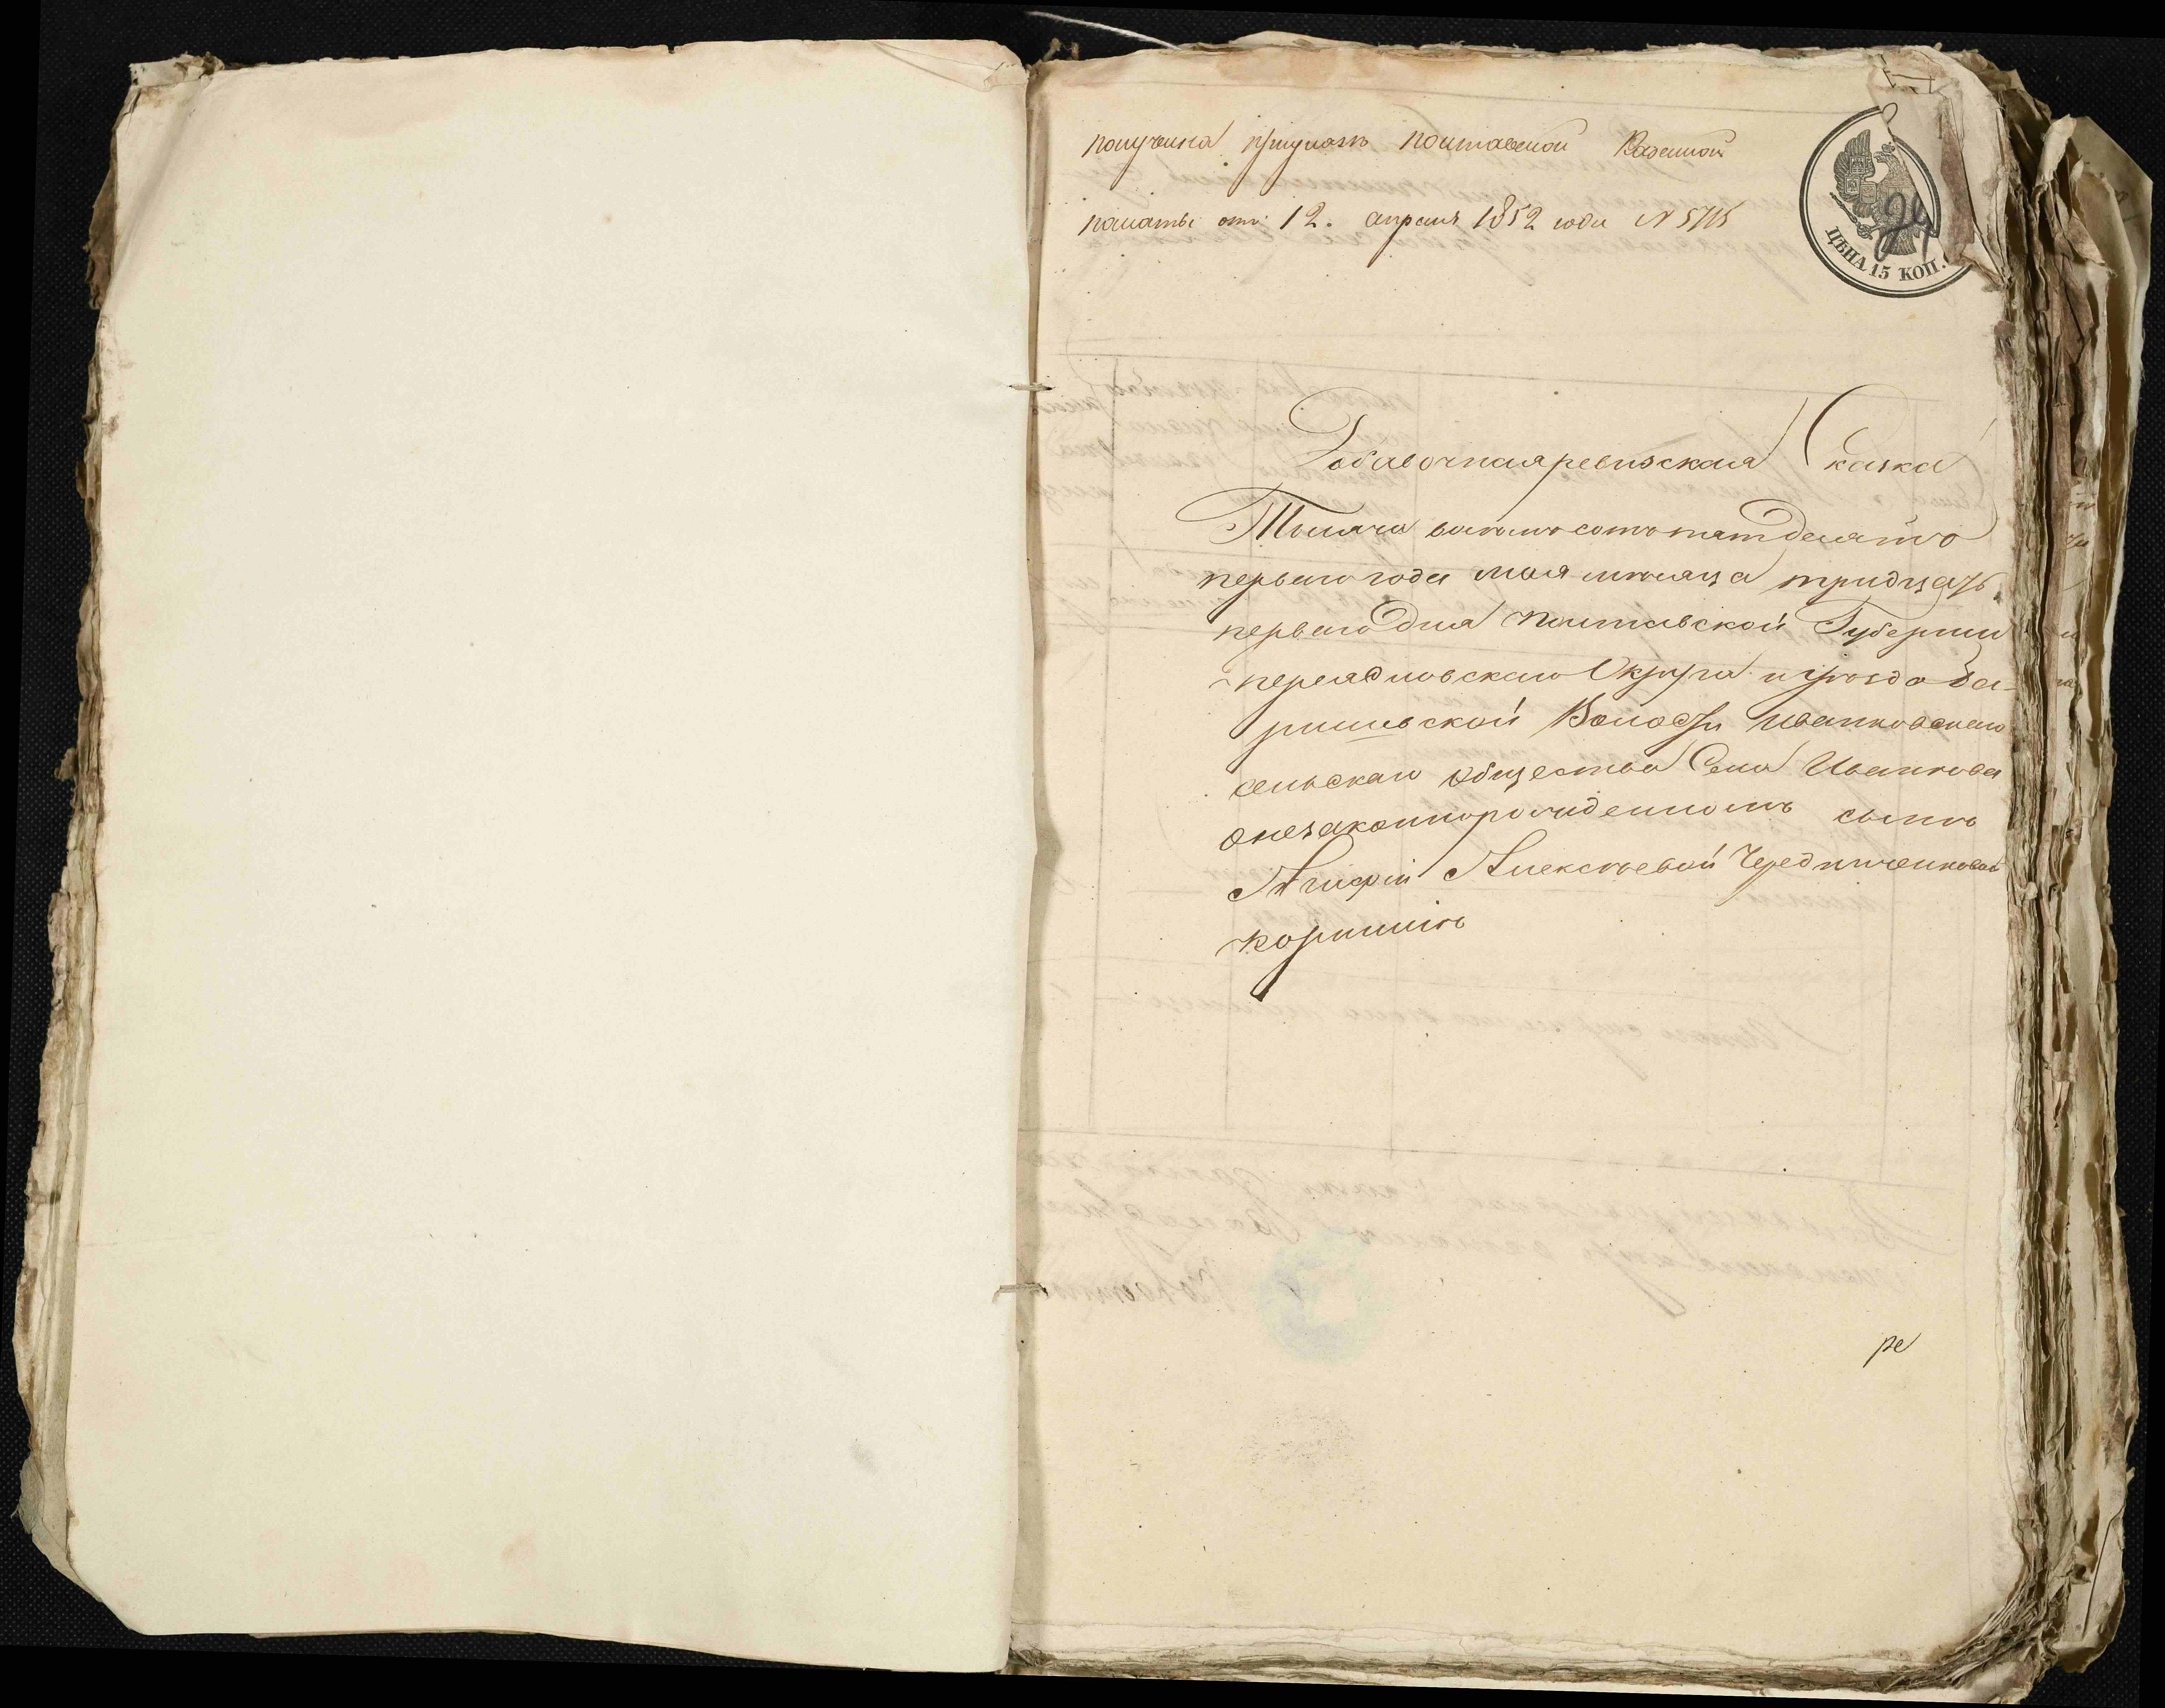 получена при указѣ полтавской Казенной
палаты отъ 12. апреля 1852 года N 5715
24
ЦѢНА 15 КОП.
Добавочная ревизская Сказка
Тысяча восемьсотъ пятдесятъ
первого года мая месяца тридцать
первого дня полтавской Губернии
переясловскаго Округа и уѣзда Ба-
ришевской Волости иванковскаго
сельскаго общества Села Иванкова
онезаконнорожденномъ сынѣ
Агафіи Алексѣевой Чередниченковой
ре